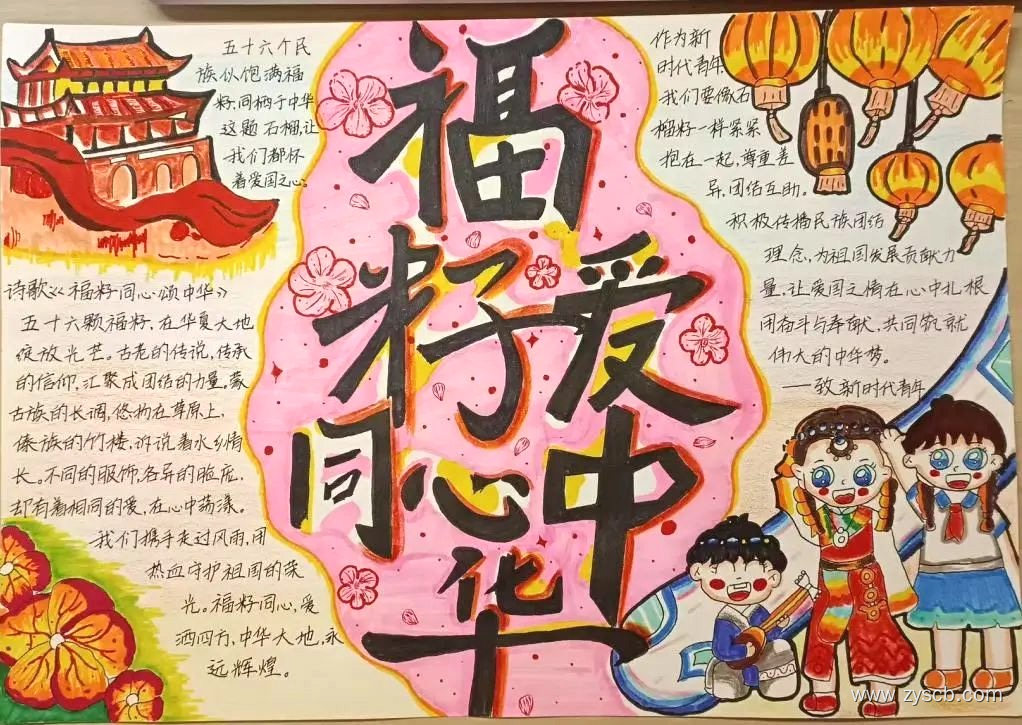 福籽同心爱中华
五十六个民
族似饱满福
籽,同栖于中华
这颗石榴,让
我们都怀
着爱国之心。
诗歌《福籽同心颂中华》
五十六颗福籽,在华夏大地
绽放光芒。古老的传说,传承
的信仰,汇聚成团结的力量。蒙
古族的长调,悠扬在草原上,
傣族的竹楼,诉说着水乡情
长。不同的服饰,各异的脸庞,
却有着相同的爱,在心中荡漾。
我们携手走过风雨,用
热血守护祖国的荣
光。福籽同心,爱
洒四方,中华大地,永
远辉煌。
作为新
时代青年,
我们要像石
榴籽一样紧紧
抱在一起,尊重差
异,团结互助。
积极传播民族团结
理念,为祖国发展贡献力
量,让爱国之情在心中扎根
用奋斗与奉献,共同筑就
伟大的中华梦。
——致新时代青年
www.zyscb.com